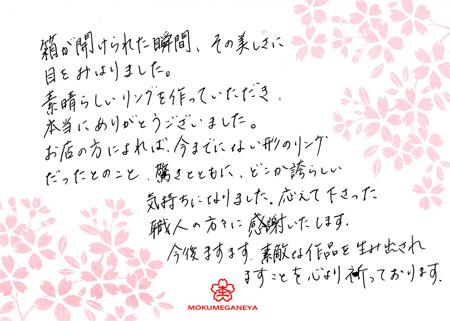 箱が開けられた瞬間、その美しさに
目をみはりました。
素晴らしいリングを作っていただき、
本当にありがとうございました。
お店の方によれば、今までにない形のリング
だったとのこと、驚きとともに、どこか誇らしい
気持ちになりました。応えて下さった
職人の方々に感謝いたします。
今後ますます、素敵な作品を生み出され
ますことを心より祈っております。
MOKUMEGANEYA